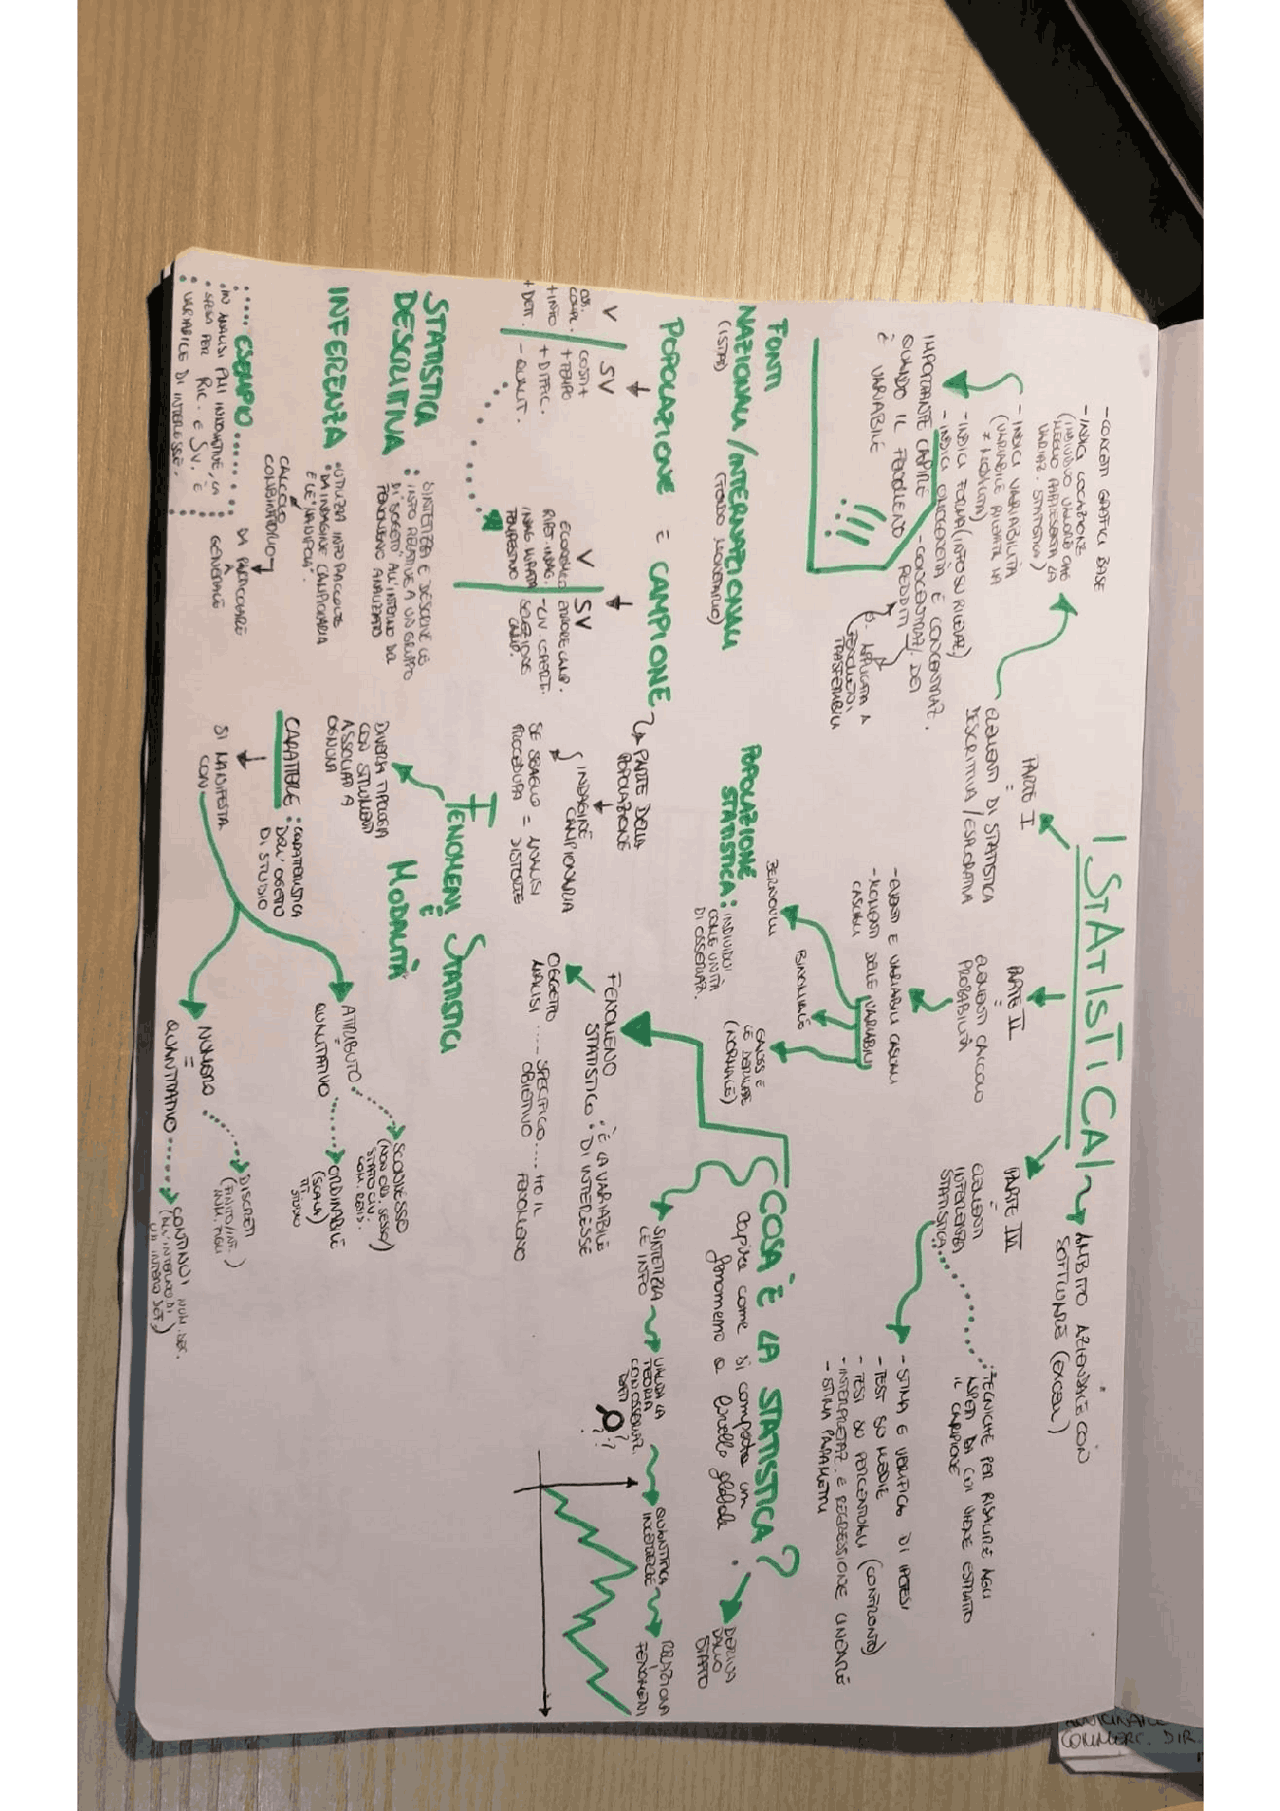 STATISTICA
AMBITO AZIENDALE CON
SOFTWARE (EXCEL)
PARTE I
=
ELEMENTI DI STATISTICA
DESCRITTIVA / ESPLORATIVA
- CONCETTI GRAFICI BASE
- INDICI LOCAZIONE
(INDIVIDUO VALORE CHE
MEGLIO RAPPRESENTA LA
VARIAZ. STATISTICA)
- INDICI VARIABILITÀ
(VARIABILE RILEVATE HA
≠ MODALITÀ)
- INDICI FORMA (INFO SU RILEVAZ.)
- INDICI OMOGENEITÀ E CONCENTRAZ.
IMPORTANTE CAPIRE
QUANDO IL FENOMENO
È VARIABILE
- CONCENTRAZ. DEI
REDDITI
APPLICATA A
FENOMENI
TRASFERIBILI
PARTE II
=
ELEMENTI CALCOLO
PROBABILITÀ
- EVENTI E VARIABILI CASUALI
- MOMENTI DELLE VARIABILI
CASUALI
BERNOULLI
BINOMIALE
GAUSS E
LE DERIVATE
(NORMALE)
PARTE III
=
ELEMENTI
INFERENZA
STATISTICA
TECNICHE PER RISALIRE AGLI
ASPETTI DA CUI VIENE ESTRATTO
IL CAMPIONE
- STIMA E VERIFICA DI IPOTESI
- TEST SU MEDIE
- TEST SU PERCENTUALI (CONFRONTO)
- INTERPRETAZ. E REGRESSIONE LINEARE
- STIMA PARAMETRI
COSA È LA STATISTICA?
Capire come si comporta un
fenomeno a livello globale.
DERIVA
DALLO
STATO
SINTETIZZA
LE INFO
VALIDA LA
TEORIA
CON OSSERVAZ.
DATI
QUANTIFICA
INCERTEZZE
RELAZIONA
FENOMENI
FENOMENO
STATISTICO: È LA VARIABILE
DI INTERESSE
OGGETTO
ANALISI .... SPECIFICO
OBIETTIVO .... HO IL
FENOMENO
FONTI
NAZIONALI / INTERNAZIONALI
(ISTAT)
(FONDO MONETARIO)
POPOLAZIONE
STATISTICA: INDIVIDUI
COME UNITÀ
DI OSSERVAZ.
POPOLAZIONE E CAMPIONE
PARTE DELLA
POPOLAZIONE
INDAGINE
CAMPIONARIA
SE SBAGLIO = ANALISI
PROCEDURA DISTORTE
V SV
COMPL. COSTI +
+ INFO + TEMPO
+ DETT. + DIFFIC.
- QUALIT.
V SV
ECONOMICO ERRORE CAMP.
RIPET. INDAG. - LIV COPERT.
INDAG MIRATA SELEZIONE
TEMPESTIVO CAMP.
STATISTICA
DESCRITTIVA: SINTETIZZA E DESCRIVE LE
INFO RELATIVE A UN GRUPPO
DI SOGGETTI ALL'INTERNO DEL
FENOMENO ANALIZZATO
INFERENZA: UTILIZZA INFO RACCOLTE
DA INDAGINE CAMPIONARIA
E LE "MANIPOLA".
CALCOLO
COMBINATORIO
DA PARTICOLARE
A
GENERALE
ESEMPIO
IN ANALISI PMI INNOVATIVE, LA
SPESA PER RIC. E SV. È
VARIABILE DI INTERESSE.
FENOMENI STATISTICI
E
MODALITÀ
DIVERSA TIPOLOGIA
CON STRUMENTI
ASSOCIATI A
OGNUNA
CARATTERE: CARATTERISTICA
DELL'OGGETTO
DI STUDIO
SI MANIFESTA
CON
ATTRIBUTO
QUALITATIVO
SCONNESSO
(NON ORD. SESSO/
STATO CIV.
COM. RESID.
ORDINABILE
(SCALA)
TIT.
STUDIO
NUMERO
=
QUANTITATIVO
DISCRETI
(FINITO/INF.)
NUM. FIGLI
CONTINUI NUM. DEC.
(ALL'INTERNO DI
UN INTERO SET)
COMMERC. DIR.